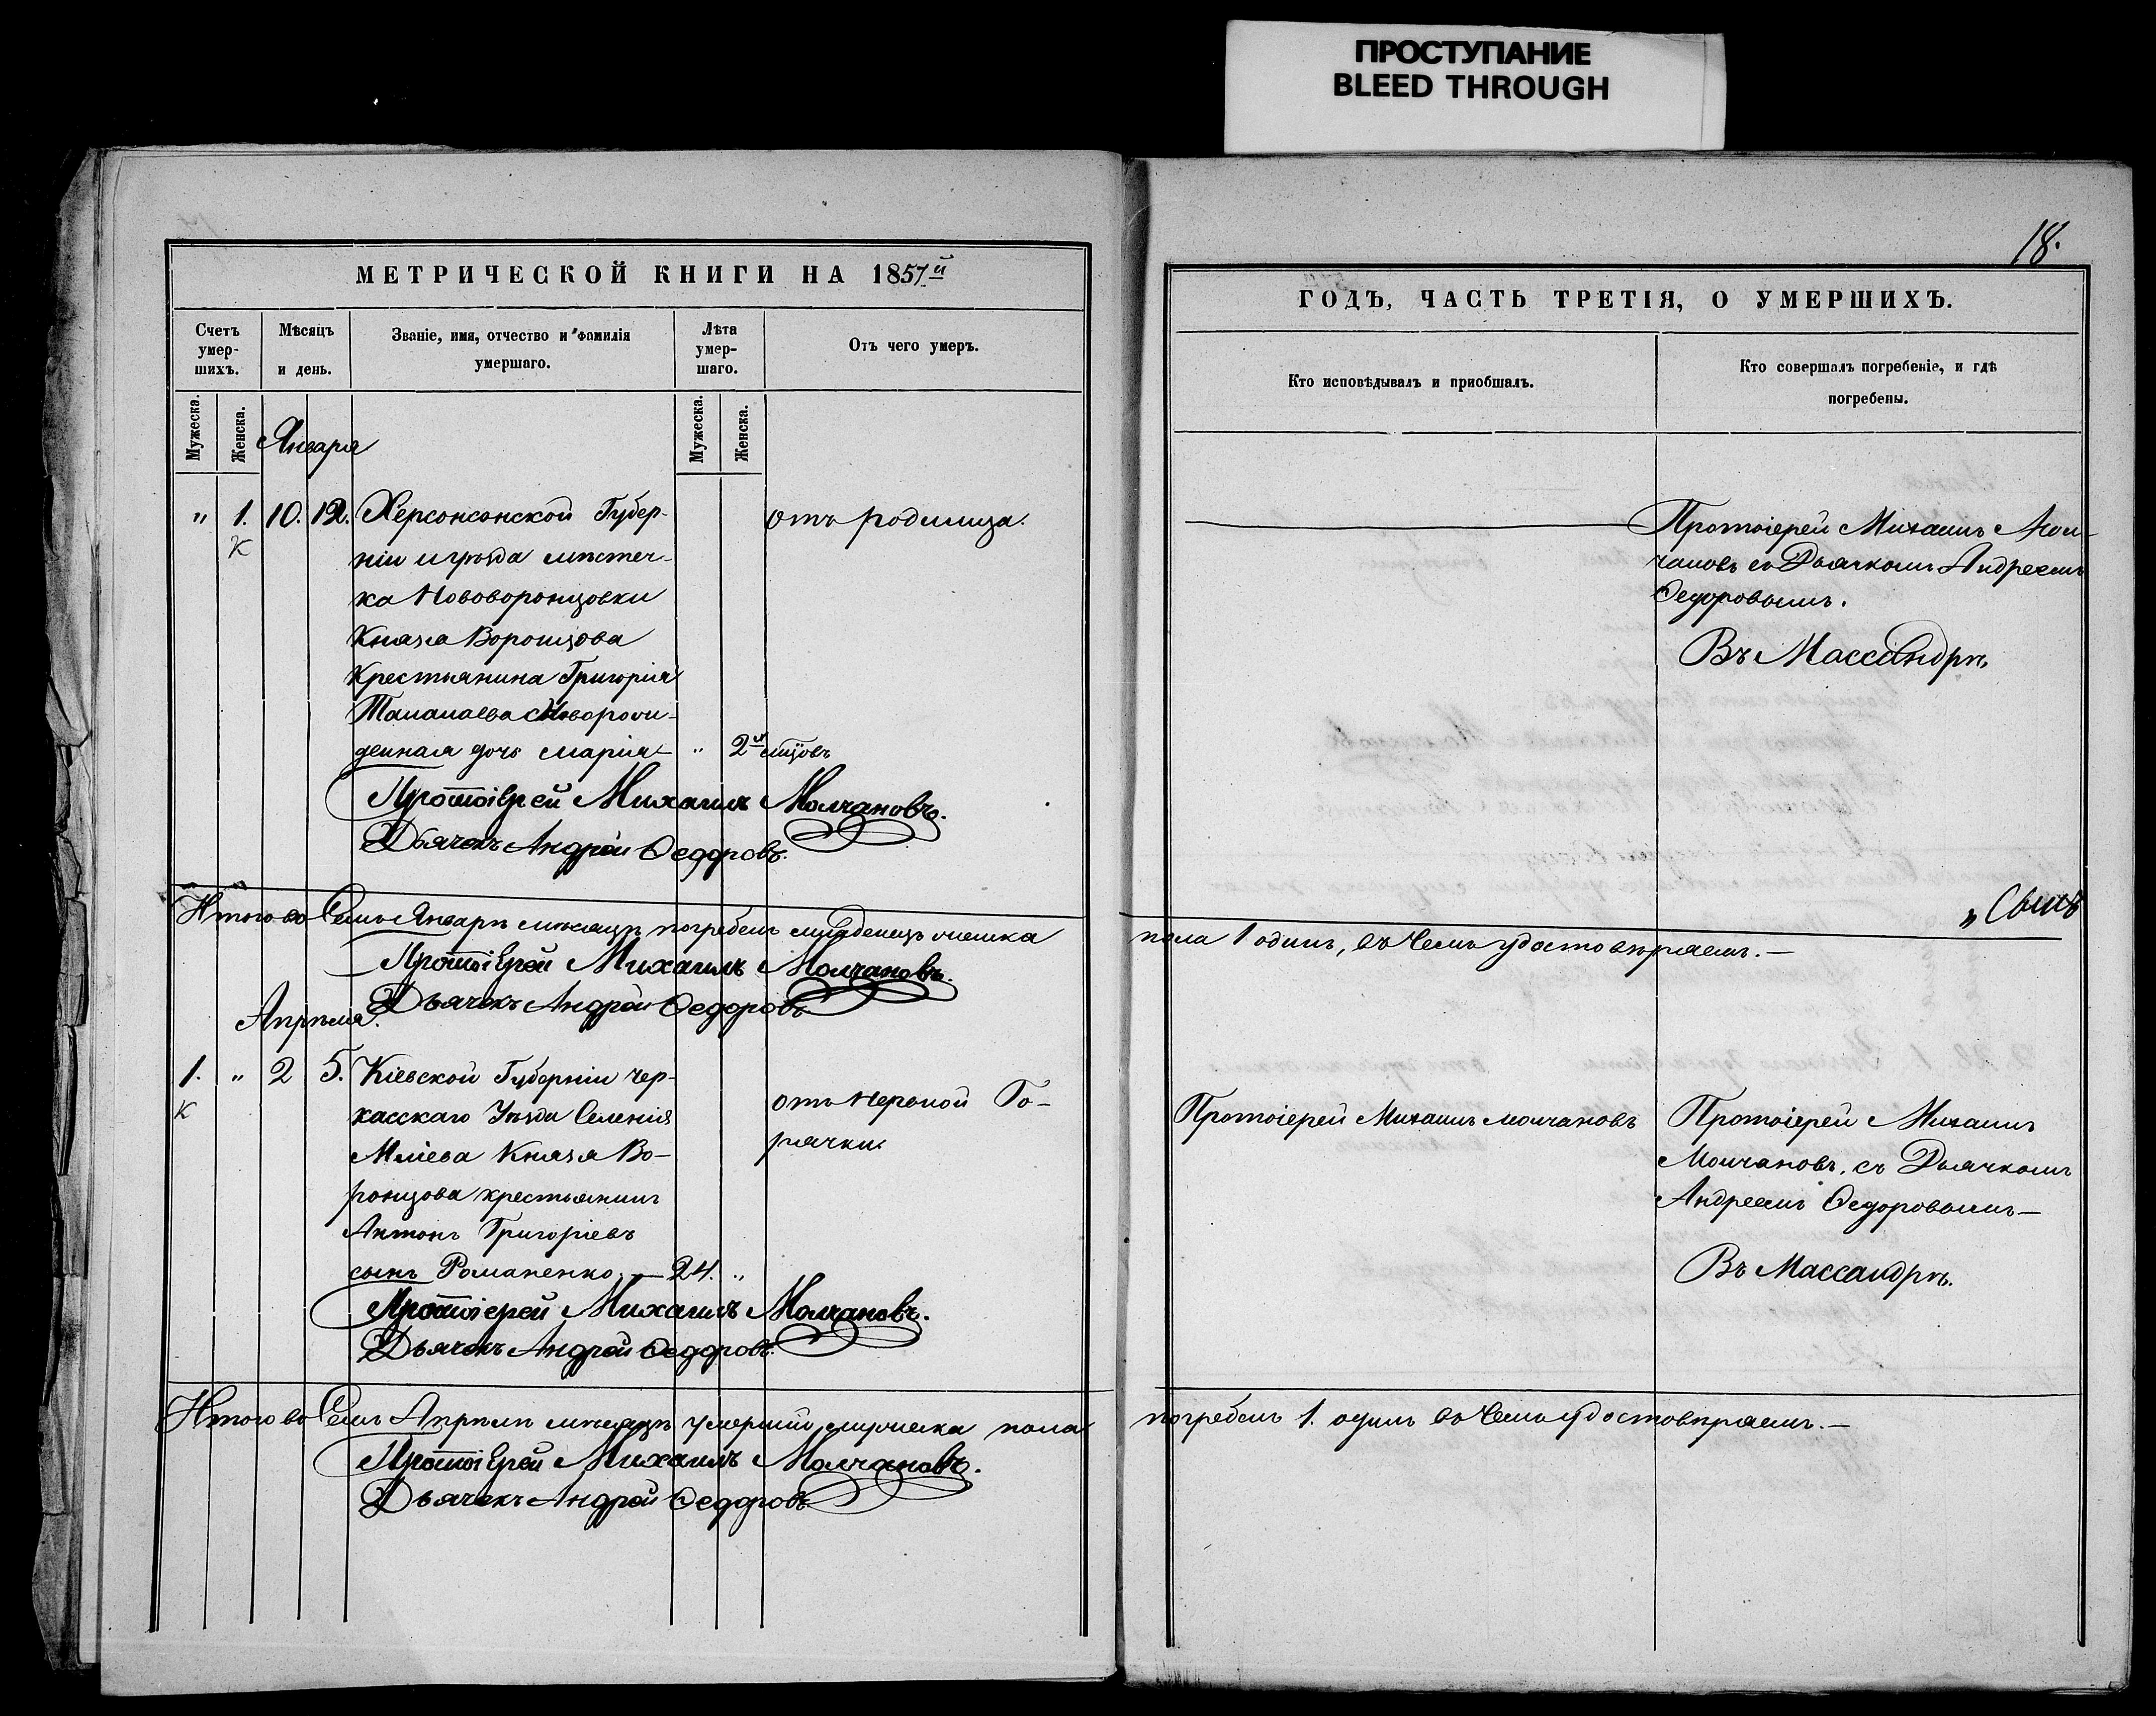 ПРОСТУПАНИЕ
BLEED THROUGH
18.
МЕТРИЧЕСКОЙ КНИГИ НА 1857й
Счетъ умер-шихъ.
Мѣсяцъ и день.
Званіе, имя, отчество и фамилія умершаго.
Лѣта умер-шаго.
Отъ чего умеръ.
Мужеска.
Женска.
Мужеска.
Женска.
Января
" 1. 10. 12. Херсонсонской Губер-
к
ніи и уѣзда мѣстеч-
ка Нововоронцовки
Князя Воронцова
Крестьянина Григорія
новорож-
денная дочь Марія " 2х мцовъ
отъ родимца.
Протоіерей Михаилъ Молчановъ.
Дьячекъ Андрей Ѳедоровъ.
Итого во Семъ Январѣ мѣсяцѣ погребенъ младенецъ женска
Протоіерей Михаилъ Молчановъ.
Дьячекъ Андрей Ѳедоровъ
Апрѣля.
1. " 2 5. Кіевской Губерніи Чер-
к
касскаго Уѣзда Селенія
Мліева Князя Во-
ронцова крестьянинъ
Антонъ Григоріевъ
сынъ Романенко. — 24. "
отъ Нервной Го-
рячки.
Протоіерей Михаилъ Молчановъ.
Дьячекъ Андрей Ѳедоровъ.
Итого во Семъ Апрѣлѣ мѣсяцѣ умершій мужеска пола
Протоіерей Михаилъ Молчановъ.
Дьячекъ Андрей Ѳедоровъ
ГОДЪ, ЧАСТЬ ТРЕТІЯ, О УМЕРШИХЪ.
Кто исповѣдывалъ и пріобщалъ.
Кто совершалъ погребеніе, и гдѣ
погребены.
Протоіерей Михаилъ Мол-
чановъ съ Дьячкомъ Андреемъ
Ѳедоровымъ.
Въ Массандрѣ
пола 1 одинъ, въ чемъ удостовѣряемъ. —
Протоіерей Михаилъ Молчановъ
Протоіерей Михаилъ
Молчановъ, съ Дьячкомъ
Андреемъ Ѳедоровымъ —
Въ Массандрѣ.
погребенъ 1. одинъ въ чемъ удостовѣряемъ. —